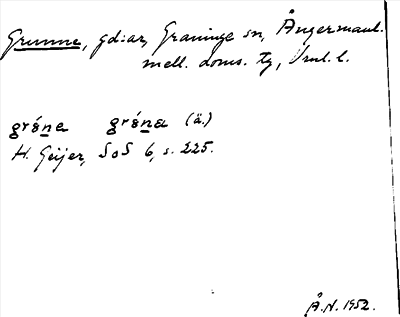 Grunne, gd:ar, Graninge sn, Ångermanl.
mell. doms. tg, Vnl. l.
gréna gréna (ä.)
H. Geijer, SoS 6, s. 225.
Å.N. 1952.